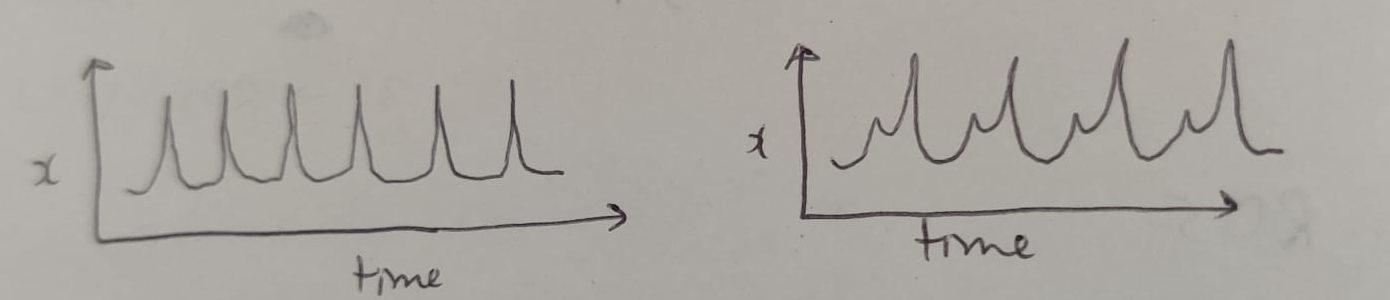 x
time
x
time